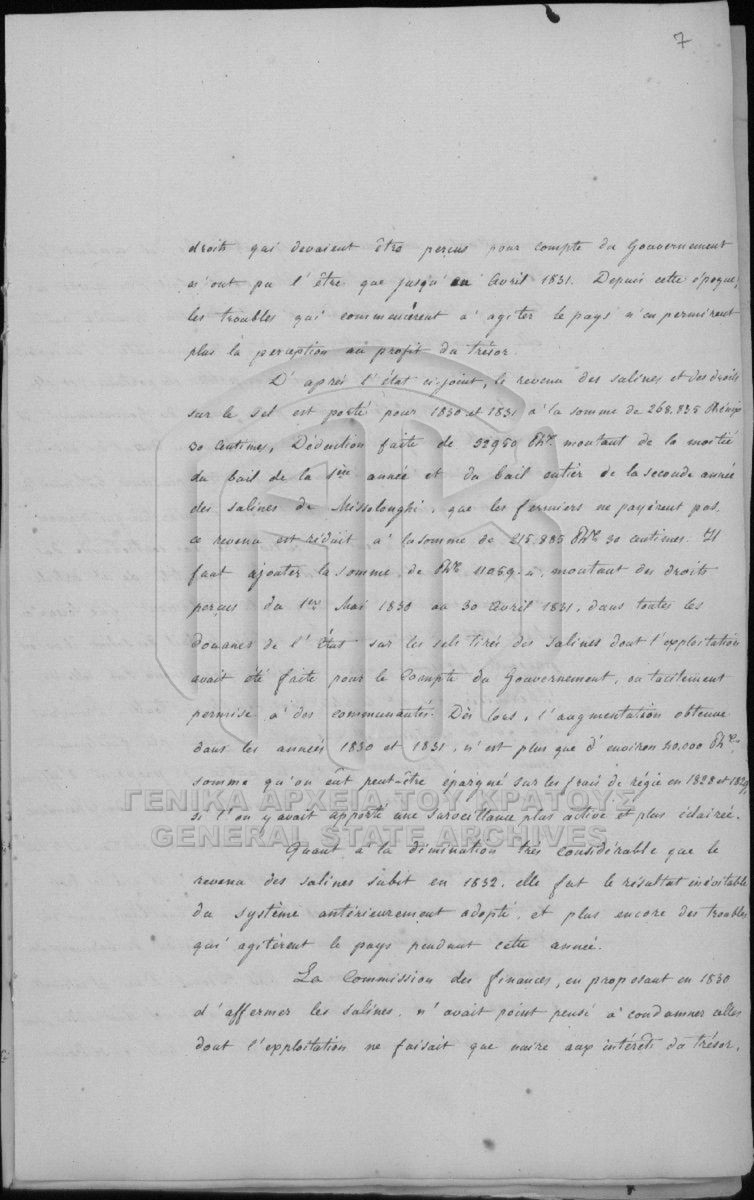 7
droits qui devaient être perçus pour compte du Gouvernement
n'ont pu l'être que jusqu'en Avril 1831. Depuis cette époque,
les troubles qui commencèrent à agiter le pays n'en permirent
plus la perception au profit du trésor.
D'après l'état ci-joint, le revenu des salines et des droits
sur le sel est porté pour 1830 et 1831 à la somme de 268.835 Phénix
30 centimes, Déduction faite de 52950 Phx. montant de la moitié
du bail de la 1ère année et du bail entier de la seconde année
des salines de Missolonghi, que les fermiers ne payèrent pas,
ce revenu est réduit à la somme de 215.885 Phx 30 centimes. Il
faut ajouter la somme de Phx 11059. montant des droits
perçus du 1er Mai 1830 au 30 Avril 1831, dans toutes les
douanes de l'État sur les sels tirés des Salines dont l'exploitation
avait été faite pour le Compte du Gouvernement, ou tacitement
permise à des communautés. Dès lors, l'augmentation obtenue
dans les années 1830 et 1831, n'est plus que d'environ 40.000 Phx,
somme qu'on eût peut-être épargné sur les frais de régie en 1828 et 1829,
si l'on y avait apporté une surveillance plus active et plus éclairée.
ΓΕΝΙΚΑ ΑΡΧΕΙΑ ΤΟΥ ΚΡΑΤΟΥΣ
GENERAL STATE ARCHIVES
Quant à la diminution très considérable que le
revenu des salines subit en 1832, elle fut le résultat inévitable
du système antérieurement adopté, et plus encore des troubles
qui agitèrent le pays pendant cette année.
La Commission des finances, en proposant en 1830
d'affermer les salines, n'avait point pensé à condamner celles
dont l'exploitation ne faisait que nuire aux intérêts du trésor,